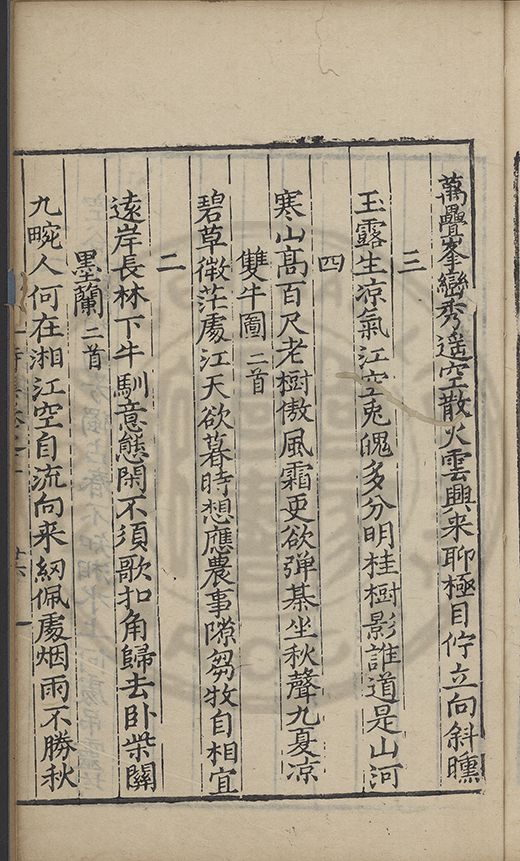 萬疊峯巒秀遥空散火雲興来聊極目佇立向斜曛
三
玉露生凉氣江空兎魄多分明桂樹影誰道是山河
四
寒山髙百尺老樹傲風霜更欲弾棊坐秋聲九夏凉
雙牛圖二首
碧草微茫處江天欲暮時想應農事隙芻牧自相宜
二
遠岸長林下牛馴意態閑不須歌扣角歸去卧柴關
墨蘭二首
九畹人何在湘江空自流向来紉佩處烟雨不勝秋